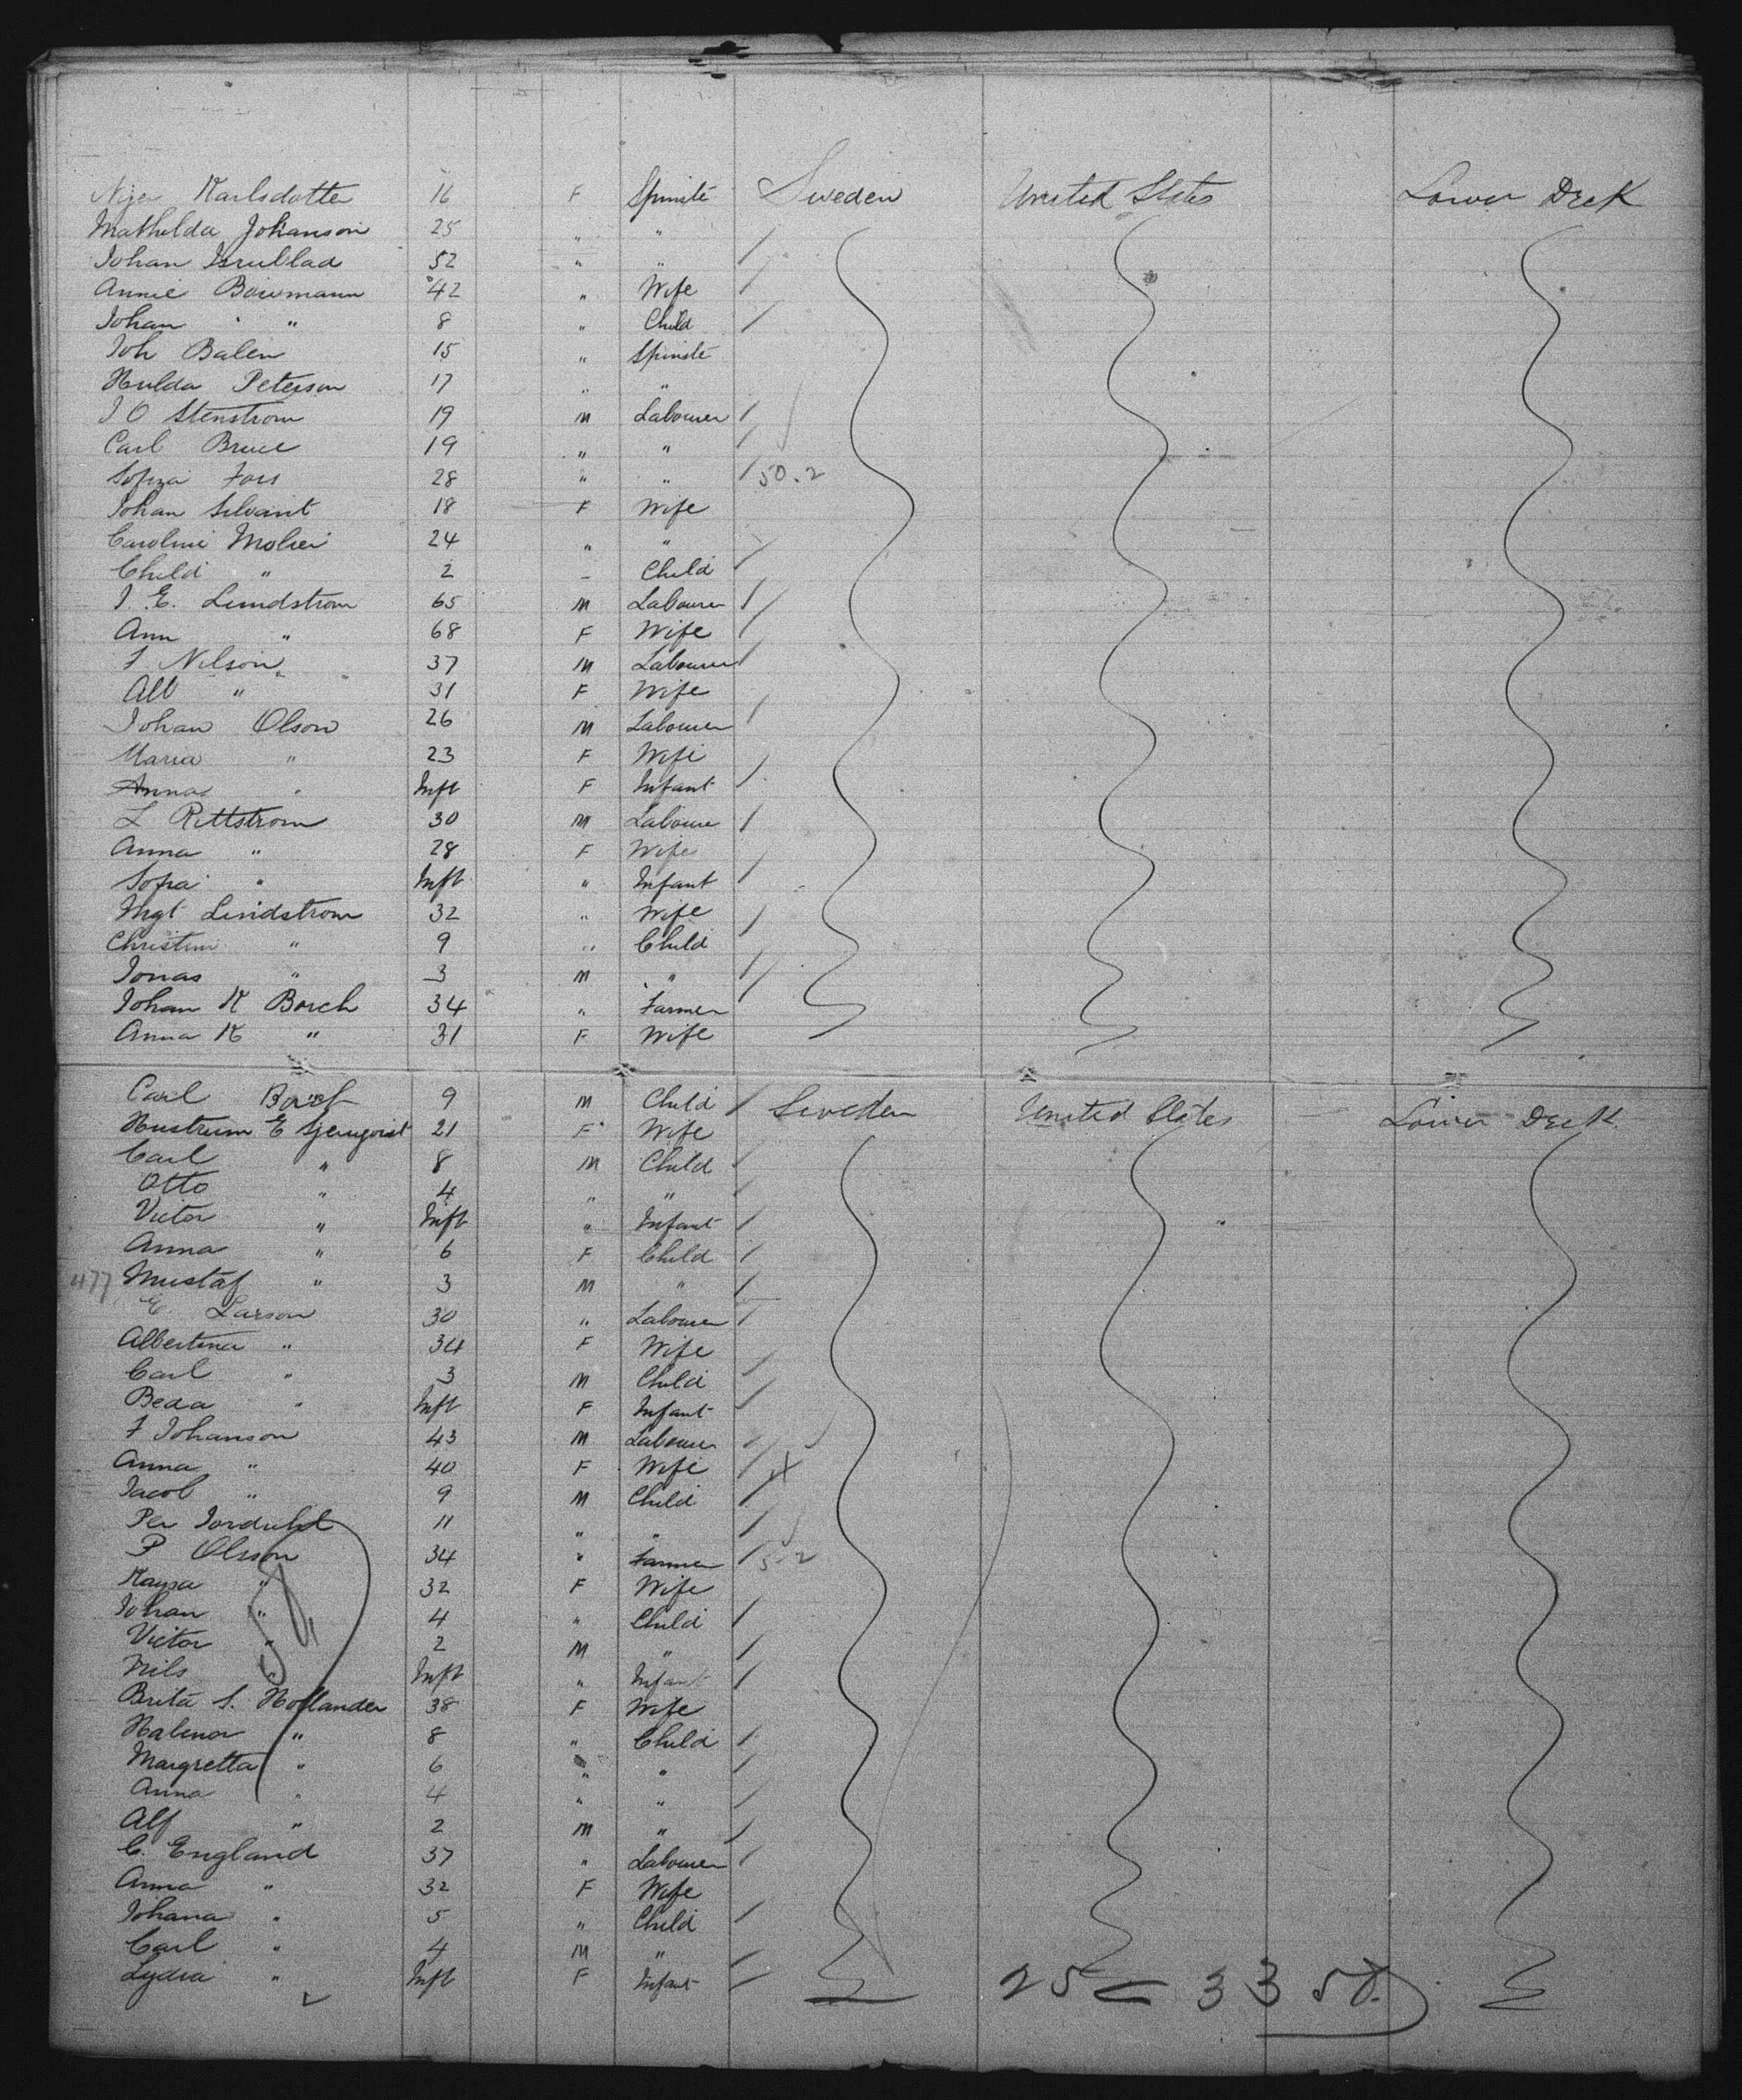 Karlsdotter 16 F Spinste Sweden United States Lower Deck
Mathilda Johanson 25 " "
Johan 52 " "
Annie Bowmann 42 " Wife
Johan " 8 " Child
Joh Balen 15 " Spinste
Hulda Peterson 17 " "
J O Stenstrom 19 M Labourer
Carl Bruce 19 " "
Fors 28 " " 50.2
Johan Silvant 18 F Wife
Caroline 24 " "
Child " 2 " Child
J. E. Lundstrom 65 M Labourer
Ann " 68 F Wife
F Nilson 37 M Labourer
Alb " 31 F Wife
Johan Olson 26 M Labourer
Maria " 23 F Wife
Anna " Inft F Infant
L Rittstrom 30 M Laboure
Anna " 28 F Wife
Sofia " Inft " Infant
Mgt Lindstrom 32 " Wife
Christin " 9 " Child
Jonas " 3 M "
Johan K Borch 34 " Farmer
Anna K " 31 F Wife
Carl 9 M Child Sweden United States Lower Deck
E 21 F Wife
Carl " 8 M Child
Otto " 4 " "
Victor " Inft " Infant
Anna " 6 F Child
477 Mustaf " 3 M "
E. Larson 30 " Labourer
Albertina " 34 F Wife
Carl " 3 M Child
Beda " Inft F Infant
F Johanson 43 M Labourer
Anna " 40 F Wife
Jacob " 9 M Child
Per 11 " "
P Olsson 34 " Farmer
Kaysa " 32 F Wife
Johan " 4 " Child
Victor " 2 M "
Nils " Inft " Infant
Brita S. Hollander 38 F Wife
Halena " 8 " Child
Margretta " 6 " "
Anna " 4 " "
Alf " 2 M "
C. England 37 " Labourer
Anna " 32 F Wife
Johana " 5 " Child
Carl " 4 M "
Lydia " Inft F Infant